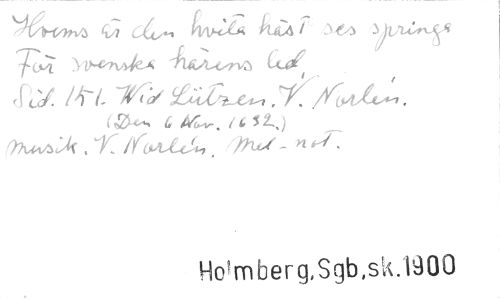 Hvems är den hvita häst ses springa
För svenska härens led,
Sid. 151. Wid Lützen. V. Norlén.
(Den 6 Nov. 1632.)
musik. V. Norlén. Mel-not.
Holmberg,Sgb,sk.1900